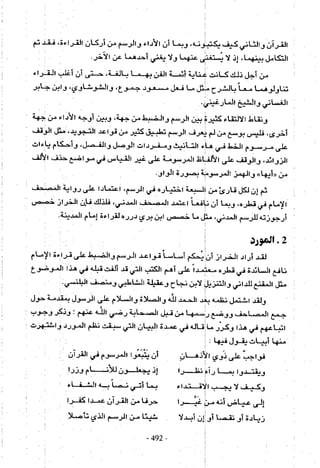 القرآن والثاني كيف يكتبونه، وبما أن الأداء والرسم من أركان القراءة، فقد تم
التكامل بينهما، إذ لا يستغنى عنهما ولا يغني أحدهما عن الآخر.
من أجل ذلك كانت عناية أئمة الفن بهما بالغة، حتى أن أغلب القراء
تناولوهما معا بالشرح مثل ما فعل مسعود جموع، والشوشاوي، وابن جابر
الغساني والشيخ المارغيني.
ونقاط الالتقاء كثيرة بين الرسم والضبط من جهة، وبين أوجه الأداء من جهة
أخرى، فليس بوسع من لم يعرف الرسم تطبيق كثير من قواعد التجويد، مثل الوقف
على مرسوم الخط في هاء التأنيث ومفردات الوصل والفصل، وأحكام ياءات
الزوائد، والوقف على الألفاظ المرسومة على غير القياس في مواضع حذف الألف
من «أيها» والهمز المرسوم بصورة الواو.
ثم إن لكل قارئ من السبعة اختياره في الرسم، اعتمادا على رواية المصحف
الإمام في قطره، وبما أن نافعا اعتمد المصحف المدني، فلذلك فإن الخراز خصص
أرجوزته للرسم المدني، مثل ما خصص ابن بري درره لقراءة إمام المدينة.
2. المورد
لقد أراد الخراز أن يحكم أساسا قواعد الرسم والضبط على قراءة الإمام
نافع السائدة في قطره معتمدا على أهم الكتب التي قد ألفت قبله في هذا الموضوع
مثل المقنع للداني والتنزيل لابن نجاح وعقيلة الشاطبي ومنصف البلنسي.
ولقد اشتمل نظمه بعد الحمد لله والصلاة والسلام على الرسول مقدمة حول
جمع المصاحف ووضع رسمها من قبل الصحابة رضي الله عنهم : فذكر وجوب
اتباعهم في هذا وكرر ما قاله في عمدة البيان التي سبقت نظم المورد واشتهرت
منها أبيات يقول فيها :
فواجب على ذوي الأذهان
أن يتبعوا المرسوم في القرآن
ويقتدوا بما رآه نظرا
إذ جعلوه للأنام وزرا
وكيف لا يجب الاقتداء
لما أتى نصا به الشفاء
إلى عياض أنه من غيرا
حرفا من القرآن عمدا كفرا
زيادة أو نقصا أو إن أبدلا
شيئا من الرسم الذي تأصلا
- 492 -